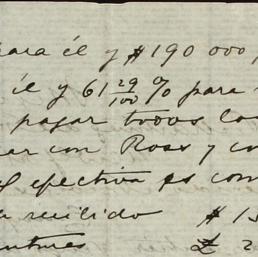 para él y $190 000,
él y 61 29/100 % para
pagar todos los
con Ross y
efectiva es com
recibido $ 15
£ 2